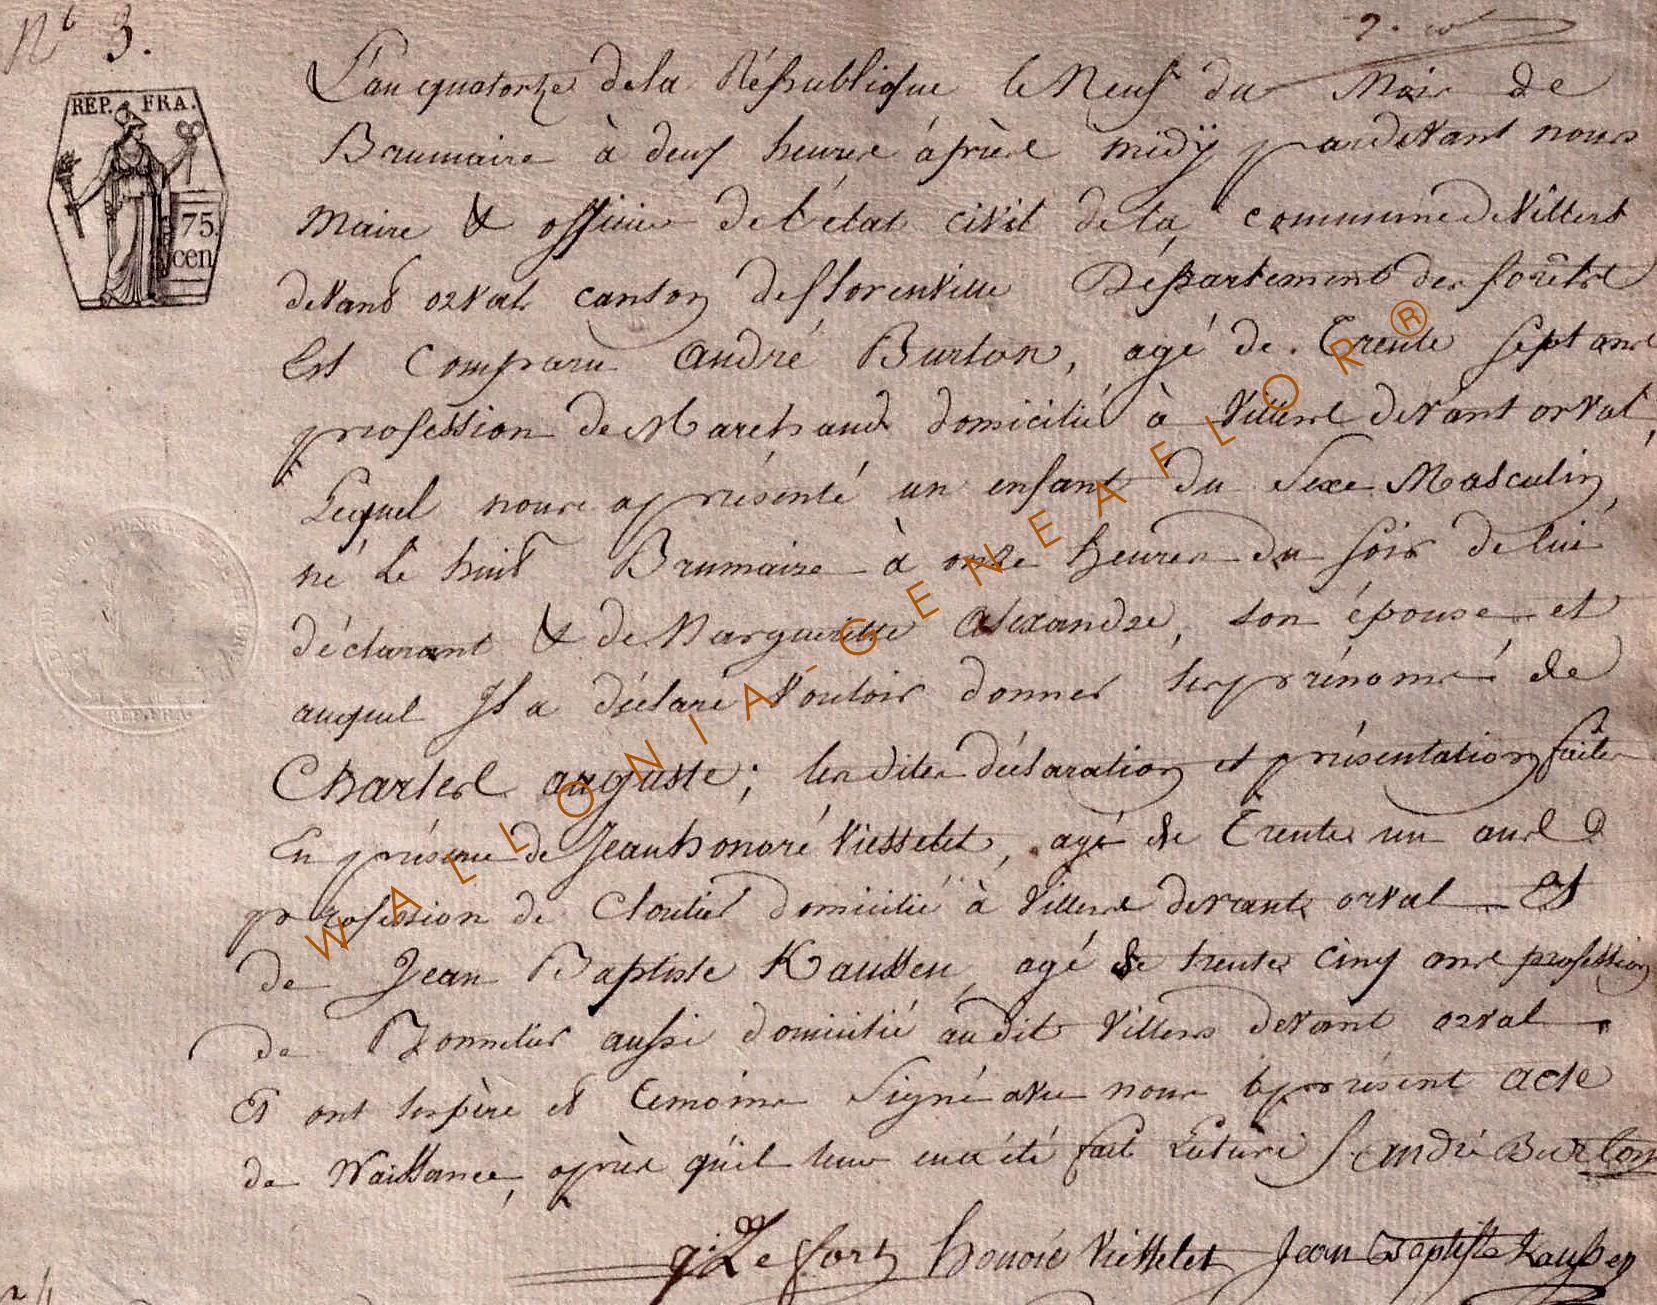 Nº 3.
REP. FRA.
75
cen
L'an quatorze de la République le Neuf du Mois de
Brumaire à deux heures après midÿ pardevant nous
Maire & officier de l'état civil de la commune de Villers
devant orval canton de florenville Département des forêts
Est Comparu andré Burton, agé de Trente sept ans
profession de Marchand domicilié à Villers devant orval,
Lequel nous a présenté un enfant du Sexe Masculin,
né le huit Brumaire à onze heures du soir de lui
déclarant & de Margueritte alexandre, son épouse et
auquel Il a déclaré Vouloir donner les prénoms de
Charles auguste; les dites déclaration et présentation faites
En présence de Jean honoré Viesselet, agé de Trente un ans
profession de Cloutier domicilié à Villers devant orval Et
de Jean Baptiste Kaussen, agé de trente cinq ans profession
de Bonnetier aussi domicilié au dit Villers devant orval
Et ont les père et temoins Signé avec nous le présent acte
de Naissance, après qu'il leur en a été fait Lecture andré Burton
Lefort honoré Viesselet Jean Baptiste Kaussen
REP. FRA.
WALLONIA-GENEAFLOR®